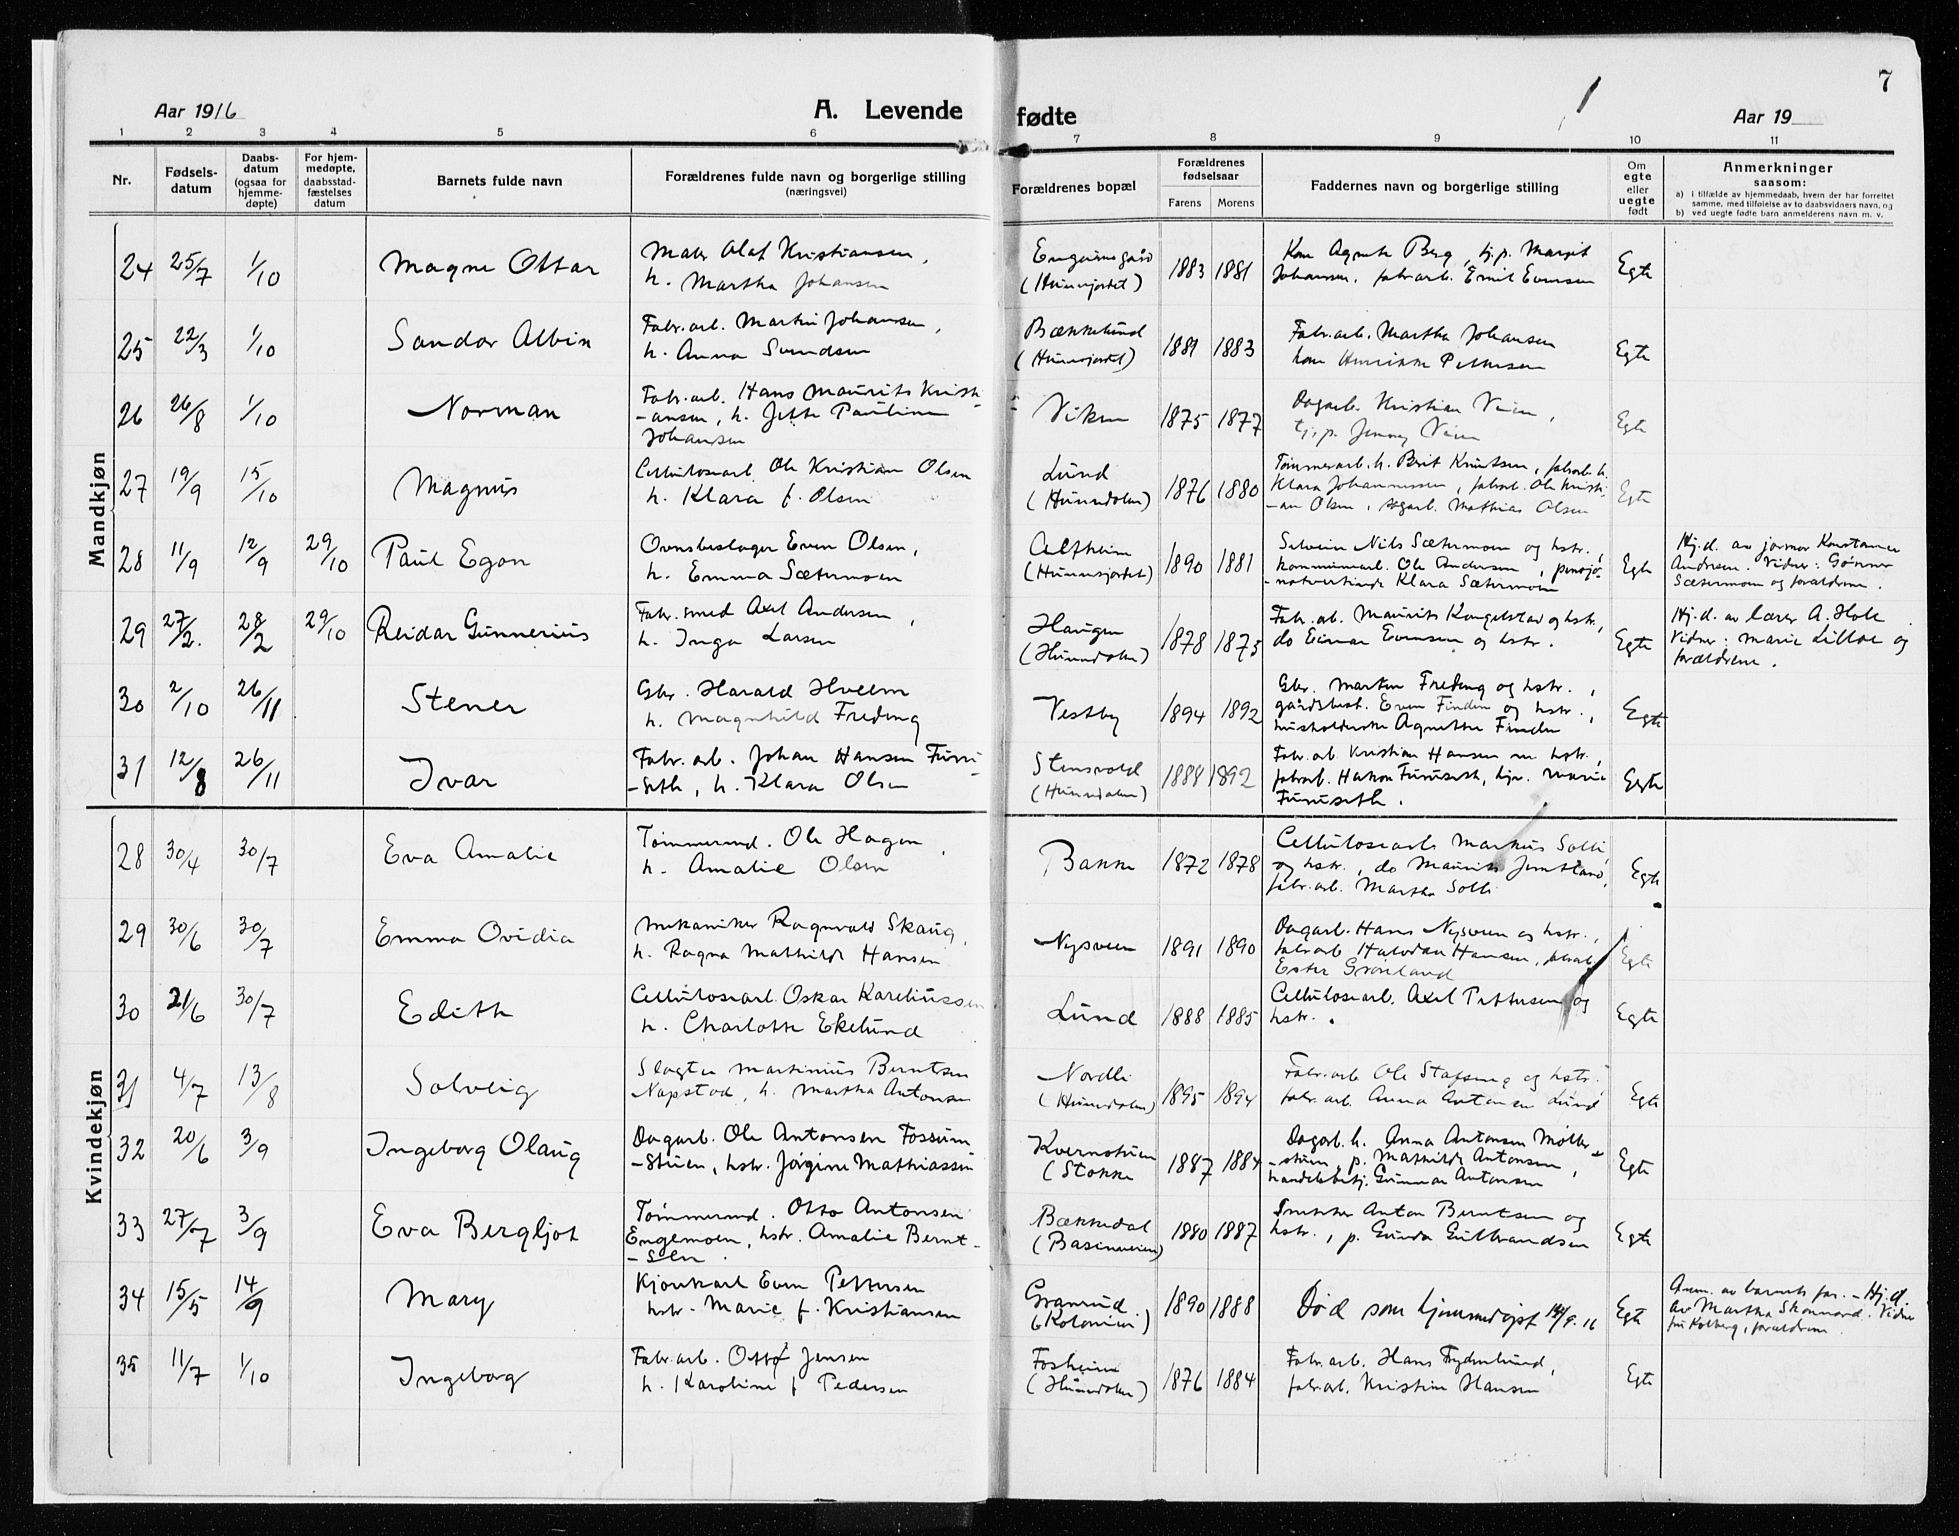 7
Aar 1916
A. Levende fødte
Aar 19
1 2 3 4 5 6 7 8 9 10 11
Nr.
Fødsels-
datum
Daabs-
datum
(ogsaa for
hjemme-
døpte)
For hjem-
medøpte,
daabsstad-
fæstelses
datum
Barnets fulde navn
Forældrenes fulde navn og borgerlige stilling
(næringsvei)
Forældrenes bopæl
Forældrenes
fødselsaar
Farens Morens
Faddernes navn og borgerlige stilling
Om
egte
eller
uegte
født
Anmerkninger
saasom:
a) i tilfælde av hjemmedaab, hvem der har forrettet
samme, med tilføielse av to daabsvidners navn, og
b) ved uegte fødte barn anmelderens navn m. v.
Mandkjøn
24 25/7 1/10 Magne Ottar
Maler Olaf Kristiansen,
h. Martha Johansen
(Hunnsjordet)
1883 1881
Kone Agnete Berg, tj.p. Margit
Johansen, fabr.arb. Emil Evensen
Egte
25 22/3 1/10 Sandor Albin
Fabr.arb. Martin Johansen,
h. Anna Svendsen
Bækkelund
(Hunnsjordet)
1881 1883
Fabr.arb. Martha Johansen
kone Henrikke Pettersen
Egte
26 26/8 1/10 Norman
Fabr.arb. Hans Maurits Kristi-
-ansen, h. Jette Pauline
Johansen
Viken
1875 1877
Dagarb. Kristian Veien,
tj.p. Jenny Veien
Egte
27 19/9 15/10 Magnus
Cellulosearb. Ole Kristian Olsen
h. Klara f. Olsen
Lund
(Hunndalen)
1876 1880
Tømmerarb. h. Berit Knutsen, fabrarb. h.
Klara Johannessen, fabrarb. Ole Kristi-
-an Olsen, sagarb. Mathias Olsen
Egte
28 11/9 12/9 29/10 Paul Egon
Ovnsbeslager Even Olsen,
h. Emma Sætermoen
Alfheim
(Hunnsjordet)
1890 1881
Nils Sætermoen og hstr.,
kommunearb. Ole Andersen,
Klara Sætermoen
Egte
Hj.d. av jormor Konstance
Andresen. Vidner: Gunnar
Sætermoen og forældrene.
29 27/2. 28/2 29/10 Reidar Gunnerius
Fabr.smed Axel Andersen,
h. Inga Larsen
Haugen
(Hunndalen)
1878 1873
Fabr.arb. Maurits Kongelstad og hstr,
do Einar Evensen og hstr.
Egte
Hj.d. av lærer A. Hole
Vidner: Marie Lilloe og
forældrene.
30 2/10 26/11 Stener
Gbr. Harald Hveem
h. Magnhild Freding
Vestby
1894 1892
Gbr. Martin Freding og hstr.,
gårdsbest. Even Finden og hstr.,
husholderske Agnethe Finden
Egte
31 12/8 26/11 Ivar
Fabr.arb. Johan Hansen Furu-
-seth, h. Klara Olsen
Stensvold
(Hunndalen)
1888 1892
Fabr.arb Kristian Hansen m. hstr.,
fabrarb. Hakon Furuseth, tjp. Marie
Furuseth.
Egte
Kvindekjøn
28 30/4 30/7 Eva Amalie
Tømmermd. Ole Hagen,
h. Amalie Olsen
Bakke
1872 1878
Cellulosearb Markus Solli
og hstr., do Maurits Jemtland,
fabr.arb. Martha Solli
Egte
29 30/6 30/7 Emma Ovidia
Mekaniker Ragnvald Skaug,
h. Ragna Mathilde Hansen
Nysveen
1891 1890
Dagarb. Hans Nysveen og hstr.,
fabrarb Halvdan Hansen, fabrarb.
Ester Grønland
Egte
30 21/6 30/7 Edith
Cellulosearb. Oskar Kareliussen
h. Charlotte Ekelund
Lund
1888 1885
Cellulosearb. Axel Pettersen og
hstr.
Egte
31 4/7 13/8 Solveig
Slagter Martinius Berntsen
Napstad, h. Martha Antonsen
Nordli
(Hunndalen)
1895 1894
Fabr.arb Ole Stafseng og hstr.
fabr.arb. Anna Antonsen Lund
Egte
32 20/6 3/9 Ingeborg Olaug
Dagarb. Ole Antonsen Fossum-
-stuen, hstr. Jørgine Mathiassen
Kvernstuen
(Stokke
1887 1884
Dagarb. h. Anna Antonsen Møller-
-stuen, p. Mathilde Antonsen,
handelsbetj. Gunnar Antonsen
Egte
33 27/7 3/9 Eva Bergljot
Tømmermd. Otto Antonsen
Engemoen, hstr. Amalie Bernt-
-sen.
Bækkedal
(Basinveien)
1880 1887
Snekker Anton Berntsen og
hstr., p. Gunda Gulbrandsen
Egte
34 15/5 14/9 Mary
Kjørekarl Even Pettersen
hstr. Marie f. Kristiansen
Granrud
(Kolonien)
1890 1888
Død som hjemmedøpt 14/9.16
Egte
Anm. av barnets far. - Hj.d.
av Martha Skonnord. Vidne
fru Kolberg, forældrene.
35 11/7 1/10 Ingeborg
Fabr.arb. Otto Jensen
h. Karoline f Pedersen
Fosheim
(Hunndalen)
1876 1884
Fabr.arb. Hans Frydenlund,
fabrarb. Kristine Hansen
Egte